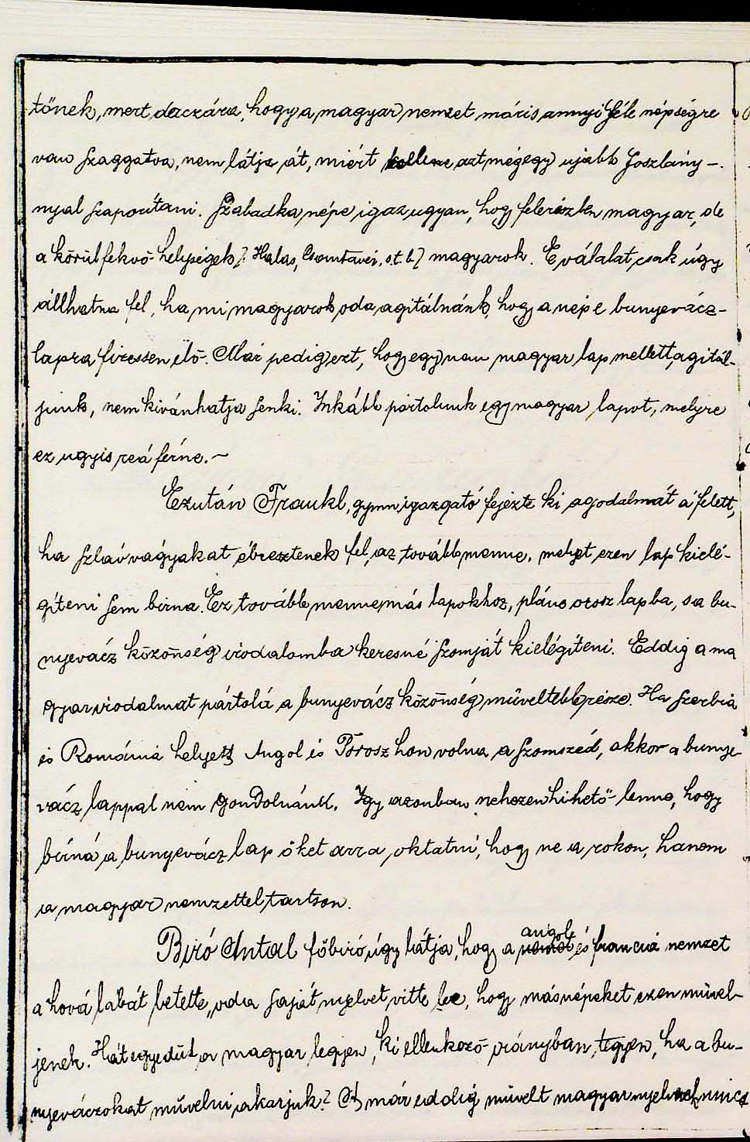 tőnek, mert daczára, hogy a magyar nemzet máris annyi féle népségre
van szaggatva, nem látja át, miért kellene azt mégegy ujabb foszlány-
nyal szaporítani. Szabadka népe igaz ugyan, hogy felerészben magyar, de
a körülfekvő helységek, Halas, s.t.b. magyarok. E vállalat, csak úgy
állhatna fel, ha mi magyarok oda agitálnánk, hogy a nép e bunyevácz-
lapra fizessen elő. Már pedig ezt, hogy egy nem magyar lap mellett agitál-
junk, nem kivánhatja senki. Inkább pártolnunk egy magyar lapot, melyre
ez ugyis reá férne.~
Ezután Fraukl, gymn igazgató fejezte ki agodalmát a felett,
ha szláv vágyakat ébresztenek fel, az tovább menne, melyet ezen lap kielé-
gíteni sem birna. Ez tovább menne más lapokhoz, pláne orosz lapba, s a bu-
nyevácz közönség irodalomba keresné szomját kielégíteni. Eddig a ma
gyar irodalmat pártolá a bunyevácz közönség műveltebb része. Ha Szerbia
és Románia helyett Angol és Porosz hon volna a szomszéd, akkor a bunye-
vácz lappal nem gondolnánk. Igy azonban nehezen hihető lenne, hogy
birná a bunyevácz lap őket arra oktatni, hogy ne a rokon, hanem
a magyar nemzettel tartson.
Biró Antal főbiró, úgy látja, hogy a angol és franczia nemzet
a hová lábát betette, oda saját nyelvet vitte be, hogy más népeket ezen művel-
jenek. Hát egyedül a magyar legyen, ki ellenkező irányban tegyen, ha a bu-
nyeváczokat művelni akarjuk? S már eddig művelt magyar nyelvnek nincs